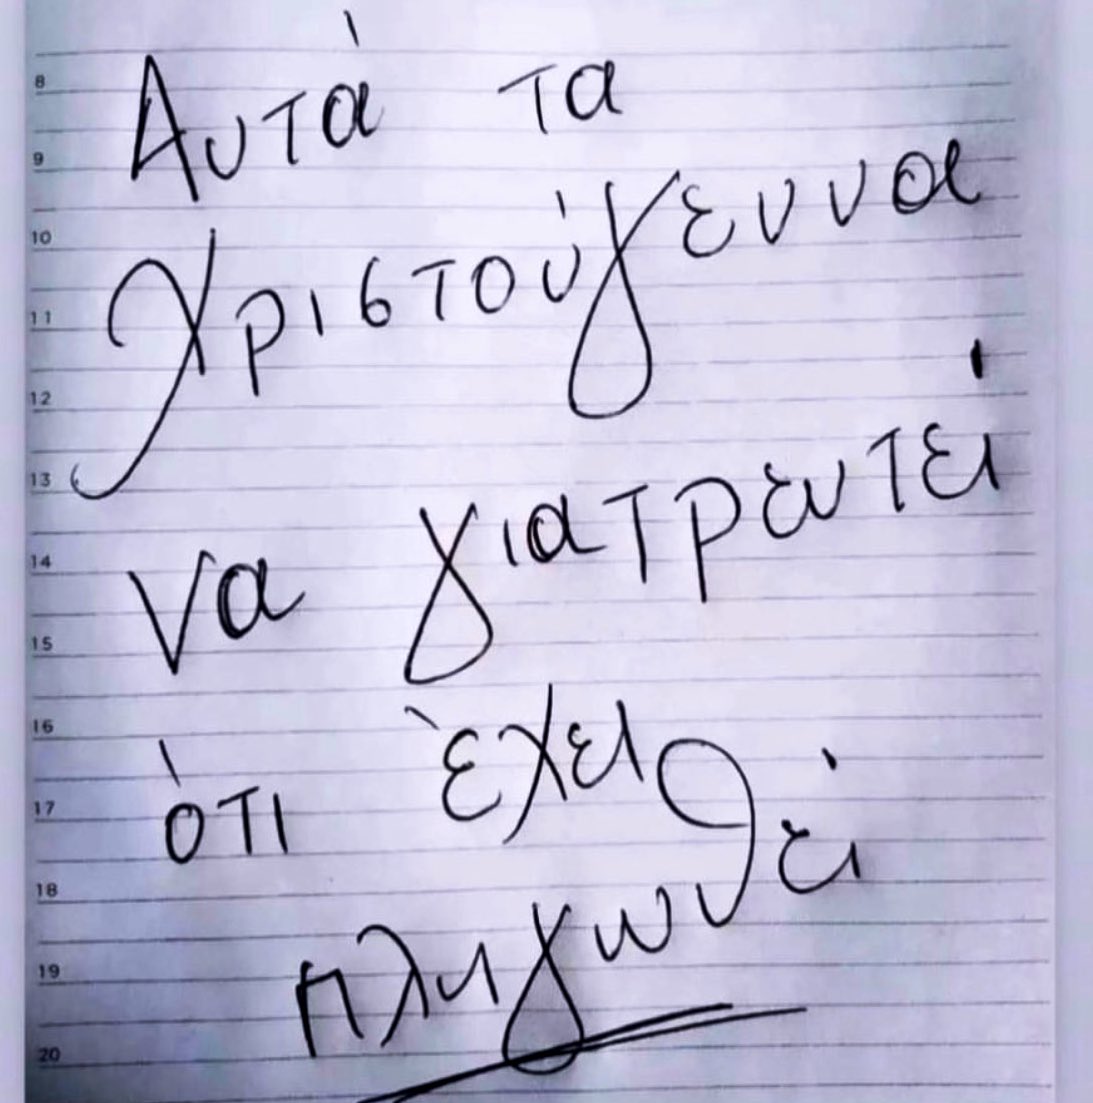 8
Αυτά τα
9
10
Χριστούγεννα
11
12
13
να γιατρευτεί
14
15
16
ότι έχει
17
18
πληγωθεί
19
20